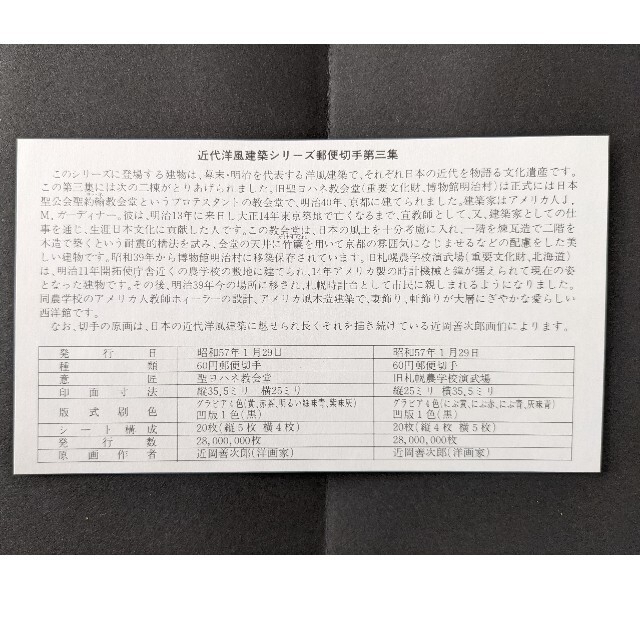 近代洋風建築シリーズ郵便切手第三集
このシリーズに登場する建物は、幕末・明治を代表する洋風建築で、それぞれ日本の近代を物語る文化遺産です。
この第三集には次の二棟がとりあげられました。旧聖ヨハネ教会堂(重要文化財、博物館明治村)は正式には日本
聖公会聖約翰教会堂というプロテスタントの教会堂で、明治40年、京都に建てられました。建築家はアメリカ人J.
M.ガーディナー。彼は、明治13年に来日し大正14年東京築地で亡くなるまで、宣教師として、又、建築家としての仕
事を通じ、生涯日本文化に貢献した人です。この教会堂は、日本の風土を十分考慮に入れ、一階を煉瓦造で二階を
木造で築くという耐震的構法を試み、会堂の天井に竹簾を用いて京都の雰囲気になじませるなどの配慮をした美
しい建物です。昭和39年から博物館明治村に移築保存されています。旧札幌農学校演武場(重要文化財、北海道)
は、明治11年開拓使庁舎近くの農学校の敷地に建てられ、14年アメリカ製の時計機械と鐘が据えられて現在の姿
となった建物です。その後、明治39年今の場所に移され、札幌時計台として市民に親しまれるようになりました。
同農学校のアメリカ人教師ホィーラーの設計、アメリカ風木造建築で、妻飾り、軒飾りが大層にぎやかな愛らしい
西洋館です。
なお、切手の原画は、日本の近代洋風建築に魅せられ長くそれを描き続けている近岡善次郎画伯によります。
発行日 昭和57年1月29日 昭和57年1月29日
種類 60円郵便切手 60円郵便切手
意匠 聖ヨハネ教会堂 旧札幌農学校演武場
印面寸法 縦35,5ミリ 横25ミリ 縦25ミリ 横35,5ミリ
版式刷色 グラビア4色(黄、赤茶、明るい緑味青、紫味灰) グラビア4色(にぶ黄、にぶ赤、にぶ青、灰味青)
凹版1色(黒) 凹版1色(黒)
シート構成 20枚(縦5枚 横4枚) 20枚(縦4枚 横5枚)
発行数 28,000,000枚 28,000,000枚
原画作者 近岡善次郎(洋画家) 近岡善次郎(洋画家)